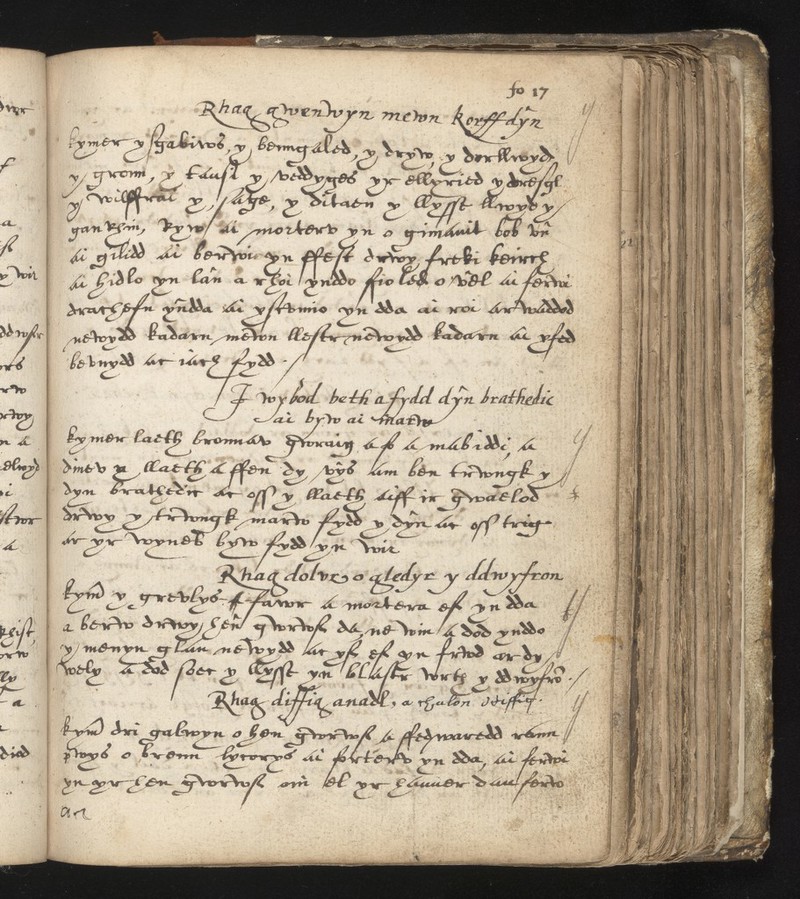 fo 17
Rhag gwenwyn mewn korff dŷn
kymer y sgabiws, y benngaled, y dryw, y derllwydd
y gronn, y tansi y veddyges yr ellyried y dresgl
y wilffrai y, sage, y ditaen y llysse llwyd y
gan rhin, kyw ai morterv yn o gimaint bob vn
ai gilidd ai berwi yn ffest drwy freki keirch
ai hidlo yn lân a rhoi ynddo ffioled o vêl ai ferwi
drachefn yndda ai ystemio yn dda ai roi ar waddod
newydd kadarn mewn llestr newydd kadarn ai yfed
bevnydd ac iach fydd
I wybod beth a fydd dŷn brathedic
ai byw ai marw
kymer laeth bronnav gwraig a fo a mab iddi, a
dinev y llaeth a ffen dy vŷs am ben trwngk y
dyn brathedic ac oss y llaeth aiff ir gwaelod
drwy y trwngk marw fydd y dŷn ac oss trig
ar yr wyneb byw fydd yn wir
Rhag dolvr o gledyr y ddwyfron
kym y grevlys fawr a mortera ef yn dda
a berw drwy hên gwrwf da, ne win a dod ynddo
y menyn glan newydd ac yf ef yn frwd ar dy
wely a dod soec y llysse yn blastr wrth y ddwyfro
Rhag diffig anadl, a chalon ddiffig.
kym dri galwyn o hen gwrwf a ffedwaredd rann
pwys o brenn lycorys ai forterv yn dda, ai ferwi
yn yr hen gwrwf oni êl yr hanner dan ferw